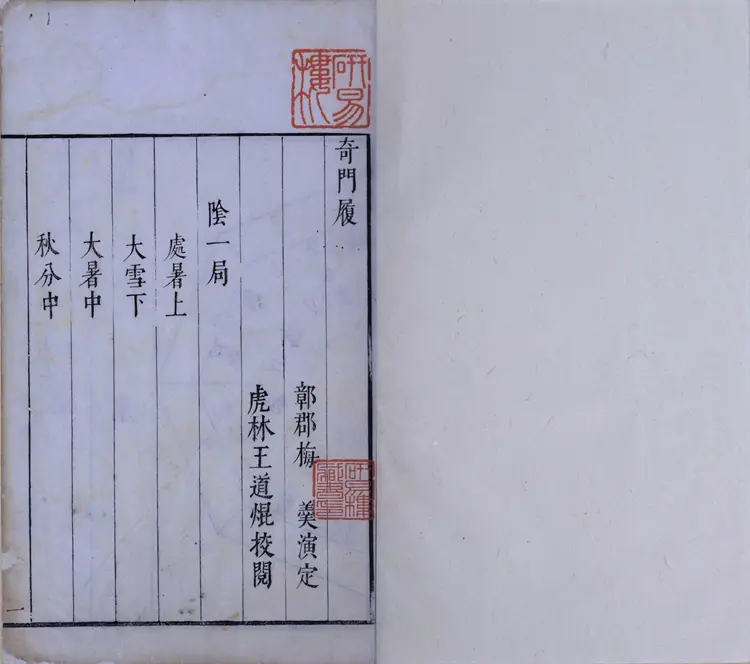 奇門履
鄣郡梅 羹演定
虎林王道焜挍閱
陰一局
處暑上
大雪下
大暑中
秋分中
一
研易樓